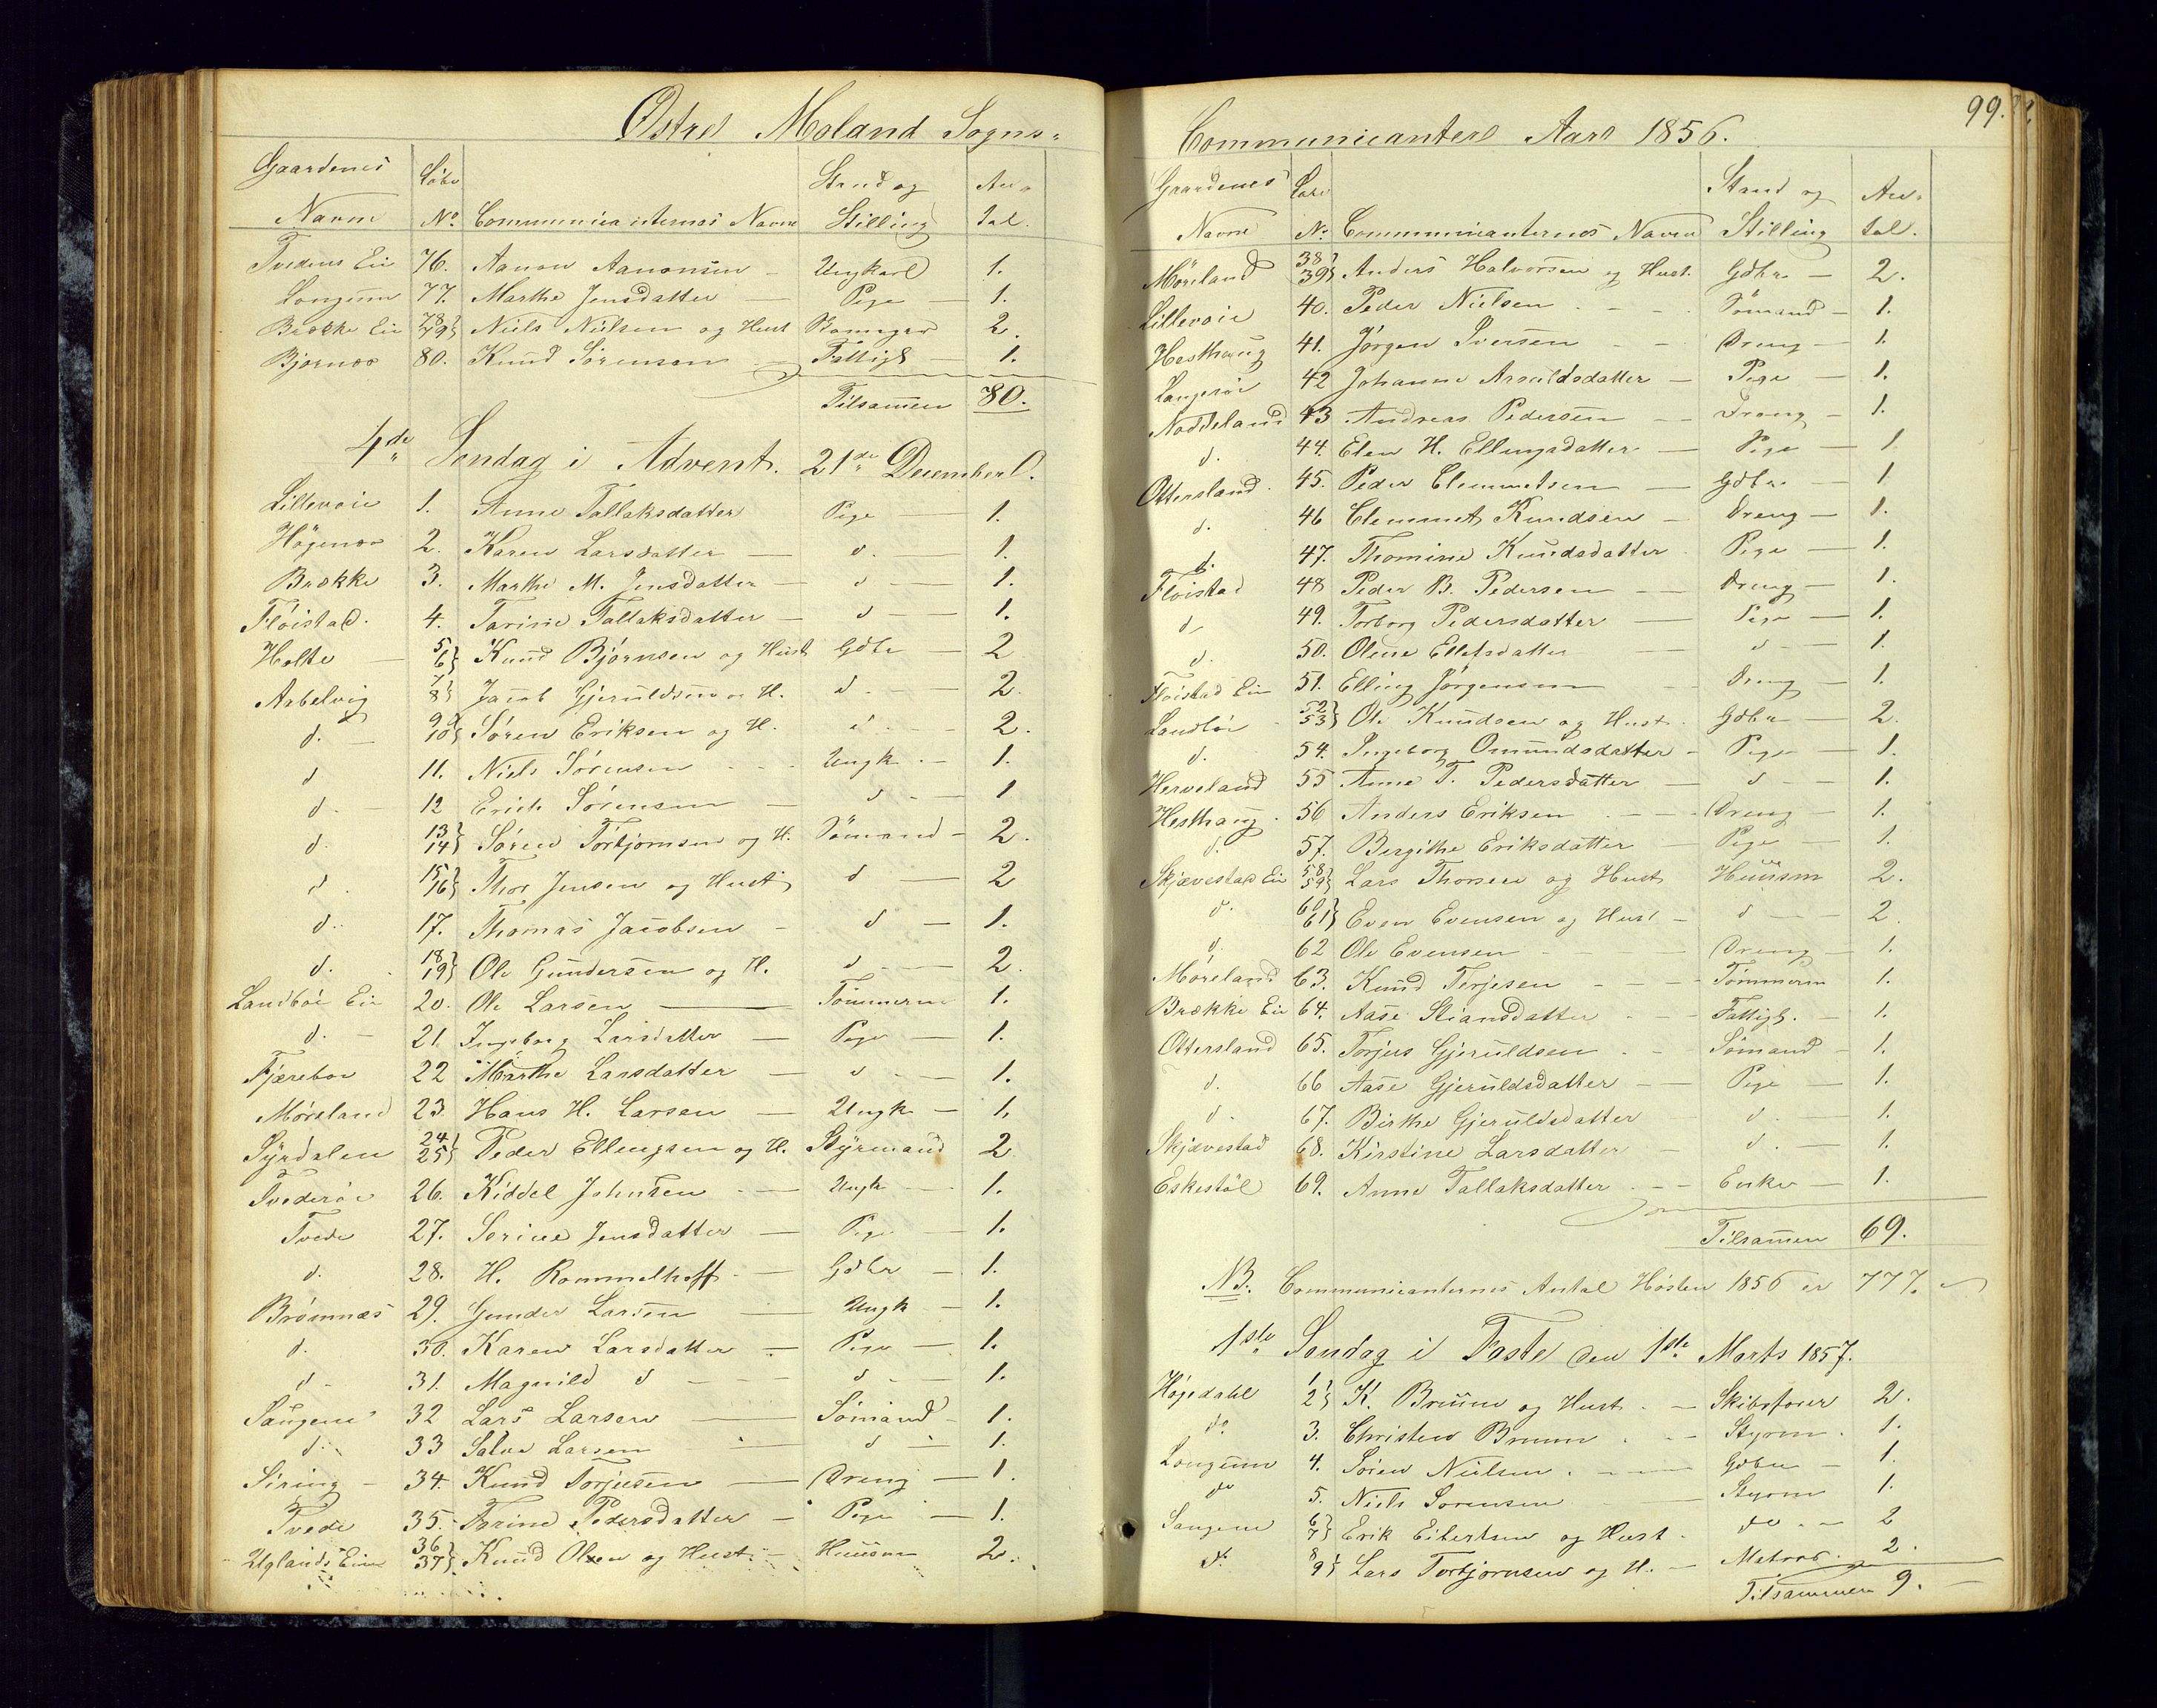 Østre Moland Sogns-
Gaardenes Løbe Stand og An-
Navne No. Communicanternes Navne Stilling tal.
Tvedens Eie 76. Aanon Aanonsen Ungkarl 1.
Longum 77. Marthe Jensdatter Pige 1.
Brække Eie 78/79} Niels Nielsen og Hust 2.
Bjornæs 80. Knud Sørensen Fattigl 1.
Tilsamen 80.
4de Søndag i Advent. 21de December.
Lillevoie 1. Anne Tallaksdatter Pige 1.
Högenæs 2. Karen Larsdatter d. 1.
Brække 3. Marthe M. Jensdatter d 1.
Flöistad. 4. Tarine Tallaksdatter d 1.
Holte 5/6} Knud Björnsen og Hust Gdbr 2
Asbelvig 7/8} Jacob Gjeruldsen og H. d. 2.
d. 9/10} Sören Eriksen og H. d. 2.
d 11. Niels Sörensen Ungk. 1.
d. 12 Erich Sörensen d 1
d. 13/14} Sören Torbjörnsen og H. Sömand 2.
d. 15/16} Thor Jensen og Hust d 2
d. 17. Thomas Jacobsen d 1.
d. 18/19} Ole Gundersen og H. d 2.
Landböe Eie 20. Ole Larsen Tömmerm 1.
d. 21. Ingeborg Larsdatter Pige 1.
Fjæreboe 22 Marthe Larsdatter d 1.
Möreland 23. Hans H. Larsen Ungk 1.
Syrdalen 24/25} Peder Ellingsen og H. Styrmand 2
Tvederöe 26. Kiddel Johnsen Ungk 1.
Tvede 27. Serine Jensdatter Pige 1.
d. 28. H. Rommelhoff Gdbr 1.
Brömnæs 29. Gunder Larsen Ungk 1.
d. 30. Karen Larsdatter Pige 1.
d 31. Magnild d d 1.
Saugene 32 Lars Larsen Sömand 1.
d. 33 Salve Larsen d 1.
Siring 34. Knud Torjusen Dreng 1.
Tvede 35. Torine Pedersdatter Pige 1.
Uglands Eie 36/37} Knud Olsen og Hust Huusm 2.
99.
Communicantere Aar 1856.
Gaardenes Løbe Stand og An-
Navne No. Communicanternes Navne Stilling tal.
Möreland 38/39} Anders Halvorsen og Hust. Gdbr 2.
Lillevoie 40. Peder Nielsen Sömand 1.
Hesthaug 41. Jörgen Iversen Dreng 1.
Langeröe 42 Johanne Asuldsdatter Pige 1.
Noddeland 43 Andreas Pedersen Dreng 1.
d. 44. Elen H. Ellingsdatter Pige 1
Ottersland. 45. Peder Clemmetsen Gdbr 1
d. 46 Clemmet Knudsen Dreng 1.
d. 47. Thomine Knudsdatter Pige 1.
Flöistad 48 Peder B. Pedersen Dreng 1.
d. 49. Torborg Pedersdatter Pige 1.
d. 50. Olene Ellefsdatter d 1.
Flöistad Eie 51. Elling Jörgensen Dreng 1.
Landböe 52/53} Ole Knudsen og Hust. Gdbr 2.
d. 54. Ingeborg Omundsdatter Pige 1.
Herveland 55 Anne T. Pedersdatter d 1.
Hesthaug. 56 Anders Eriksen Dreng 1.
d. 57. Bergithe Eriksdatter Pige 1.
Skjævestad Eie 58/59} Lars Thorsen og Hust Huusm 2.
d. 60/61} Even Evensen og Hust d 2
d. 62 Ole Evensen Dreng 1.
Möreland 63. Knud Terjesen Tömmerm 1.
Brække Eie 64. Aase Stiansdatter Fattigl. 1.
Ottersland 65. Torjus Gjeruldsen Sömand 1.
d. 66 Aase Gjeruldsdatter Pige 1.
d. 67. Birthe Gjeruldsdatter d. 1.
Skjævestad 68. Kirstine Larsdatter d. 1.
Eskestöl 69. Anne Tallaksdatter Enke 1.
Tilsamen 69.
NB. Communicanternes Antal Hösten 1856 er 777.
1ste Søndag i Faste den 1ste Marts 1857.
Högedahl 1/2} K. Bruun og Hust. Skibsförer 2.
do 3. Christen Bruun Styrm. 1.
Longum 4. Sören Nielsen. Gdbr 1.
do 5. Niels Sorensen Styrm 1.
Saugene 6/7} Erik Eilertsen og Hust do 2
d. 8/9} Lars Torbjörnsen og H. Matros. 2.
Tilsammen 9.